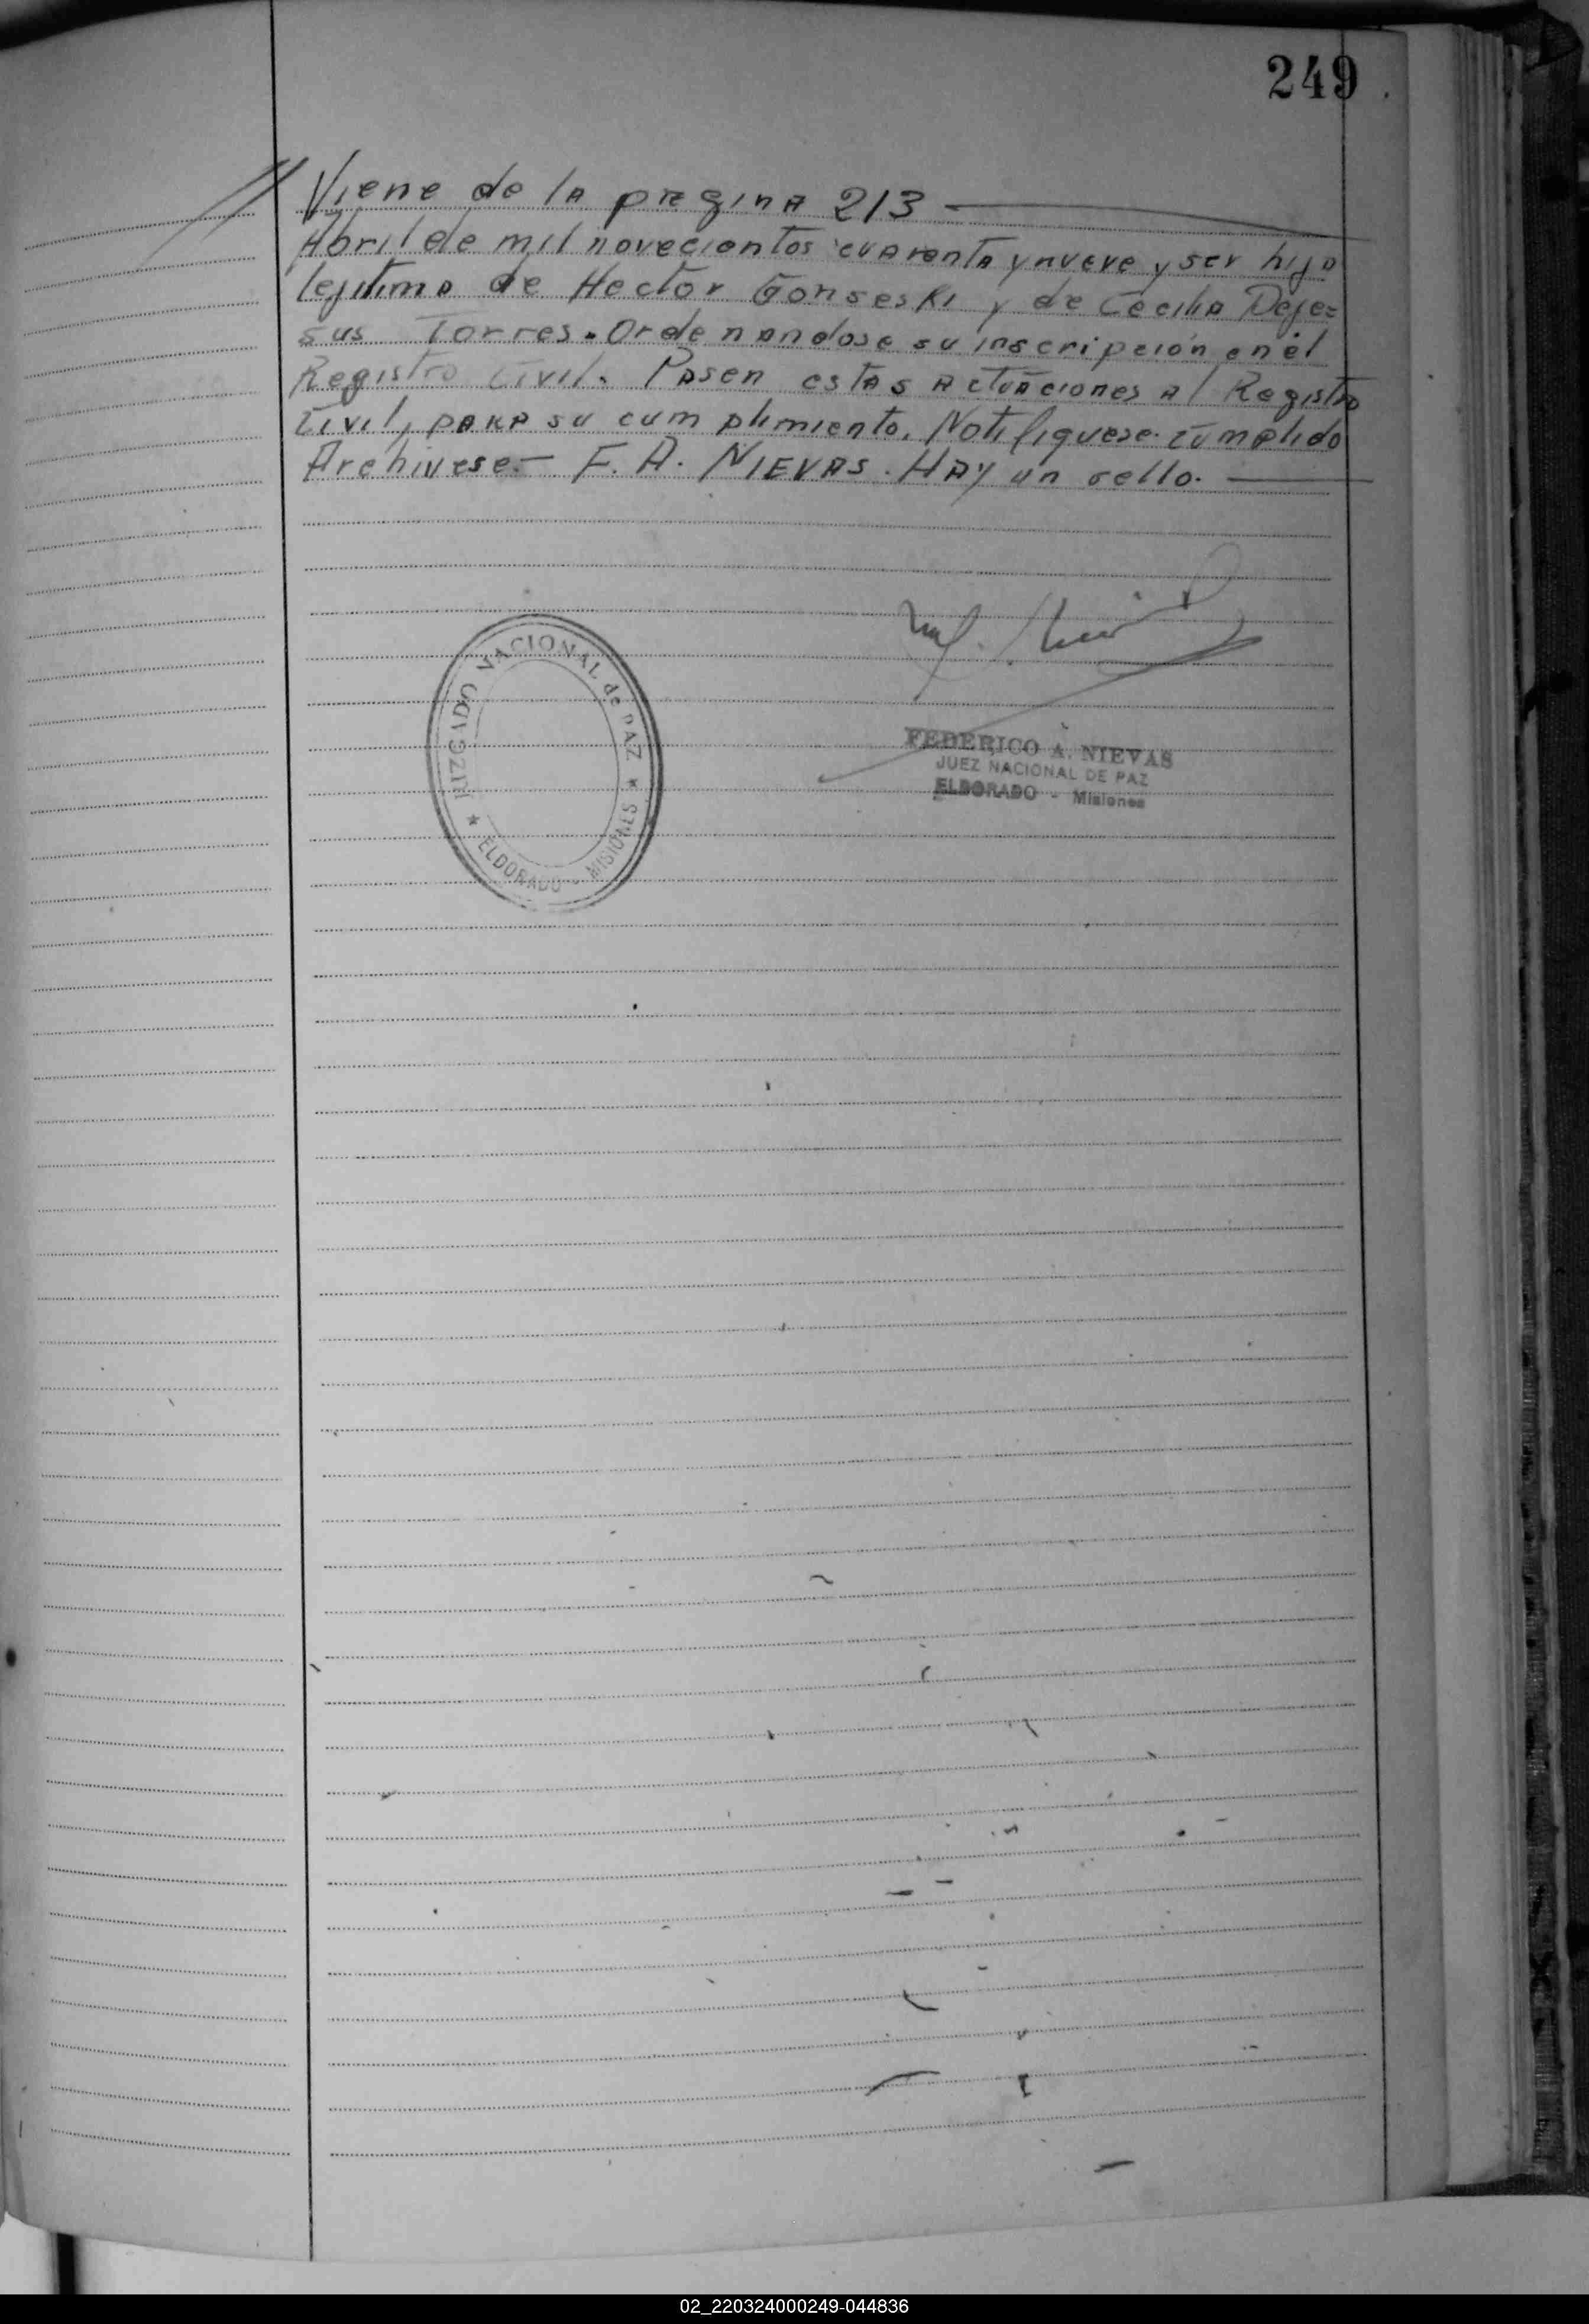 249
Viene de la pagina 213
Abril de mil novecientos cuarenta y nueve y ser hijo
lejitimo de Hector Gonseski y de Cecilia Deje=
sus Torres. Ordenandose su inscripción en el
Registro Civil. Pasen estas actuaciones al Registro
Civil, para su cumplimiento. Notifiquese. Cumplido
Archivese.- F. A. NIEVAS. HAY un sello.
JUZGADO NACIONAL de PAZ
★ ELDORADO - MISIONES ★
FEDERICO A. NIEVAS
JUEZ NACIONAL DE PAZ
ELDORADO - Misiones
02_220324000249-044836